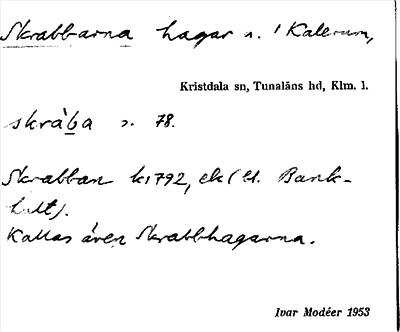 Skrabbarna hagar n. i Kalerum,
Kristdala sn, Tunaläns hd, Klm. l.
skràba s. 78.
Skrabban k1792, ek (H. Bank-
hult).
Kallas även Skrabbhagarna.
Ivar Modéer 1953